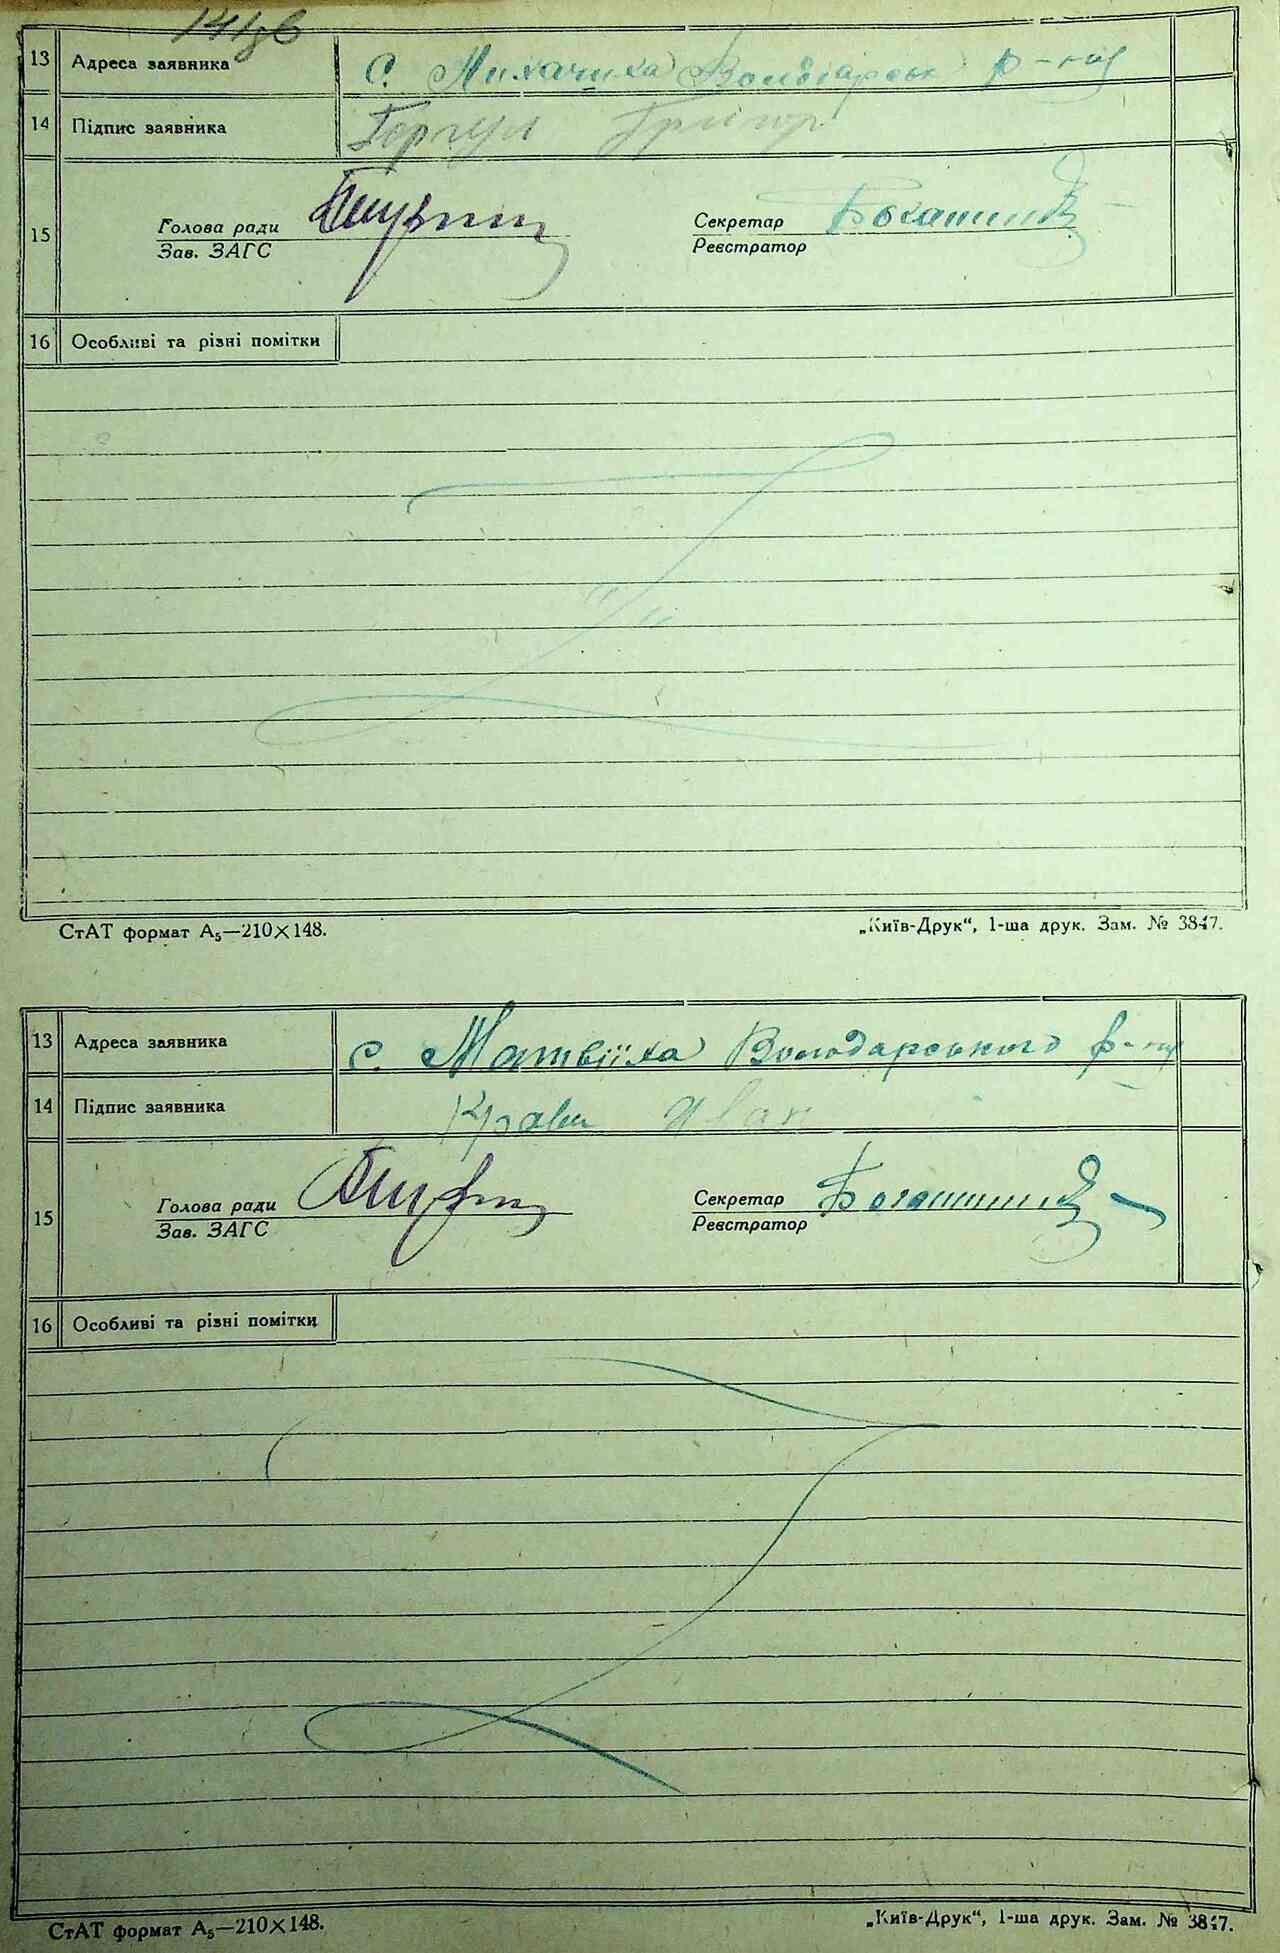 141зв
13 Адреса заявника с. Володарськ р-ну
14 Підпис заявника Григор
15 Голова ради Секретар
Зав. ЗАГС Реєстратор
16 Особливі та різні помітки
СтАТ формат А₅—210×148. „Київ-Друк“, 1-ша друк. Зам. № 3847.
13 Адреса заявника с. Матвіїха Володарського р-ну
14 Підпис заявника Іван
15 Голова ради Секретар
Зав. ЗАГС Реєстратор
16 Особливі та різні помітки
СтАТ формат А₅—210×148. „Київ-Друк“, 1-ша друк. Зам. № 3847.